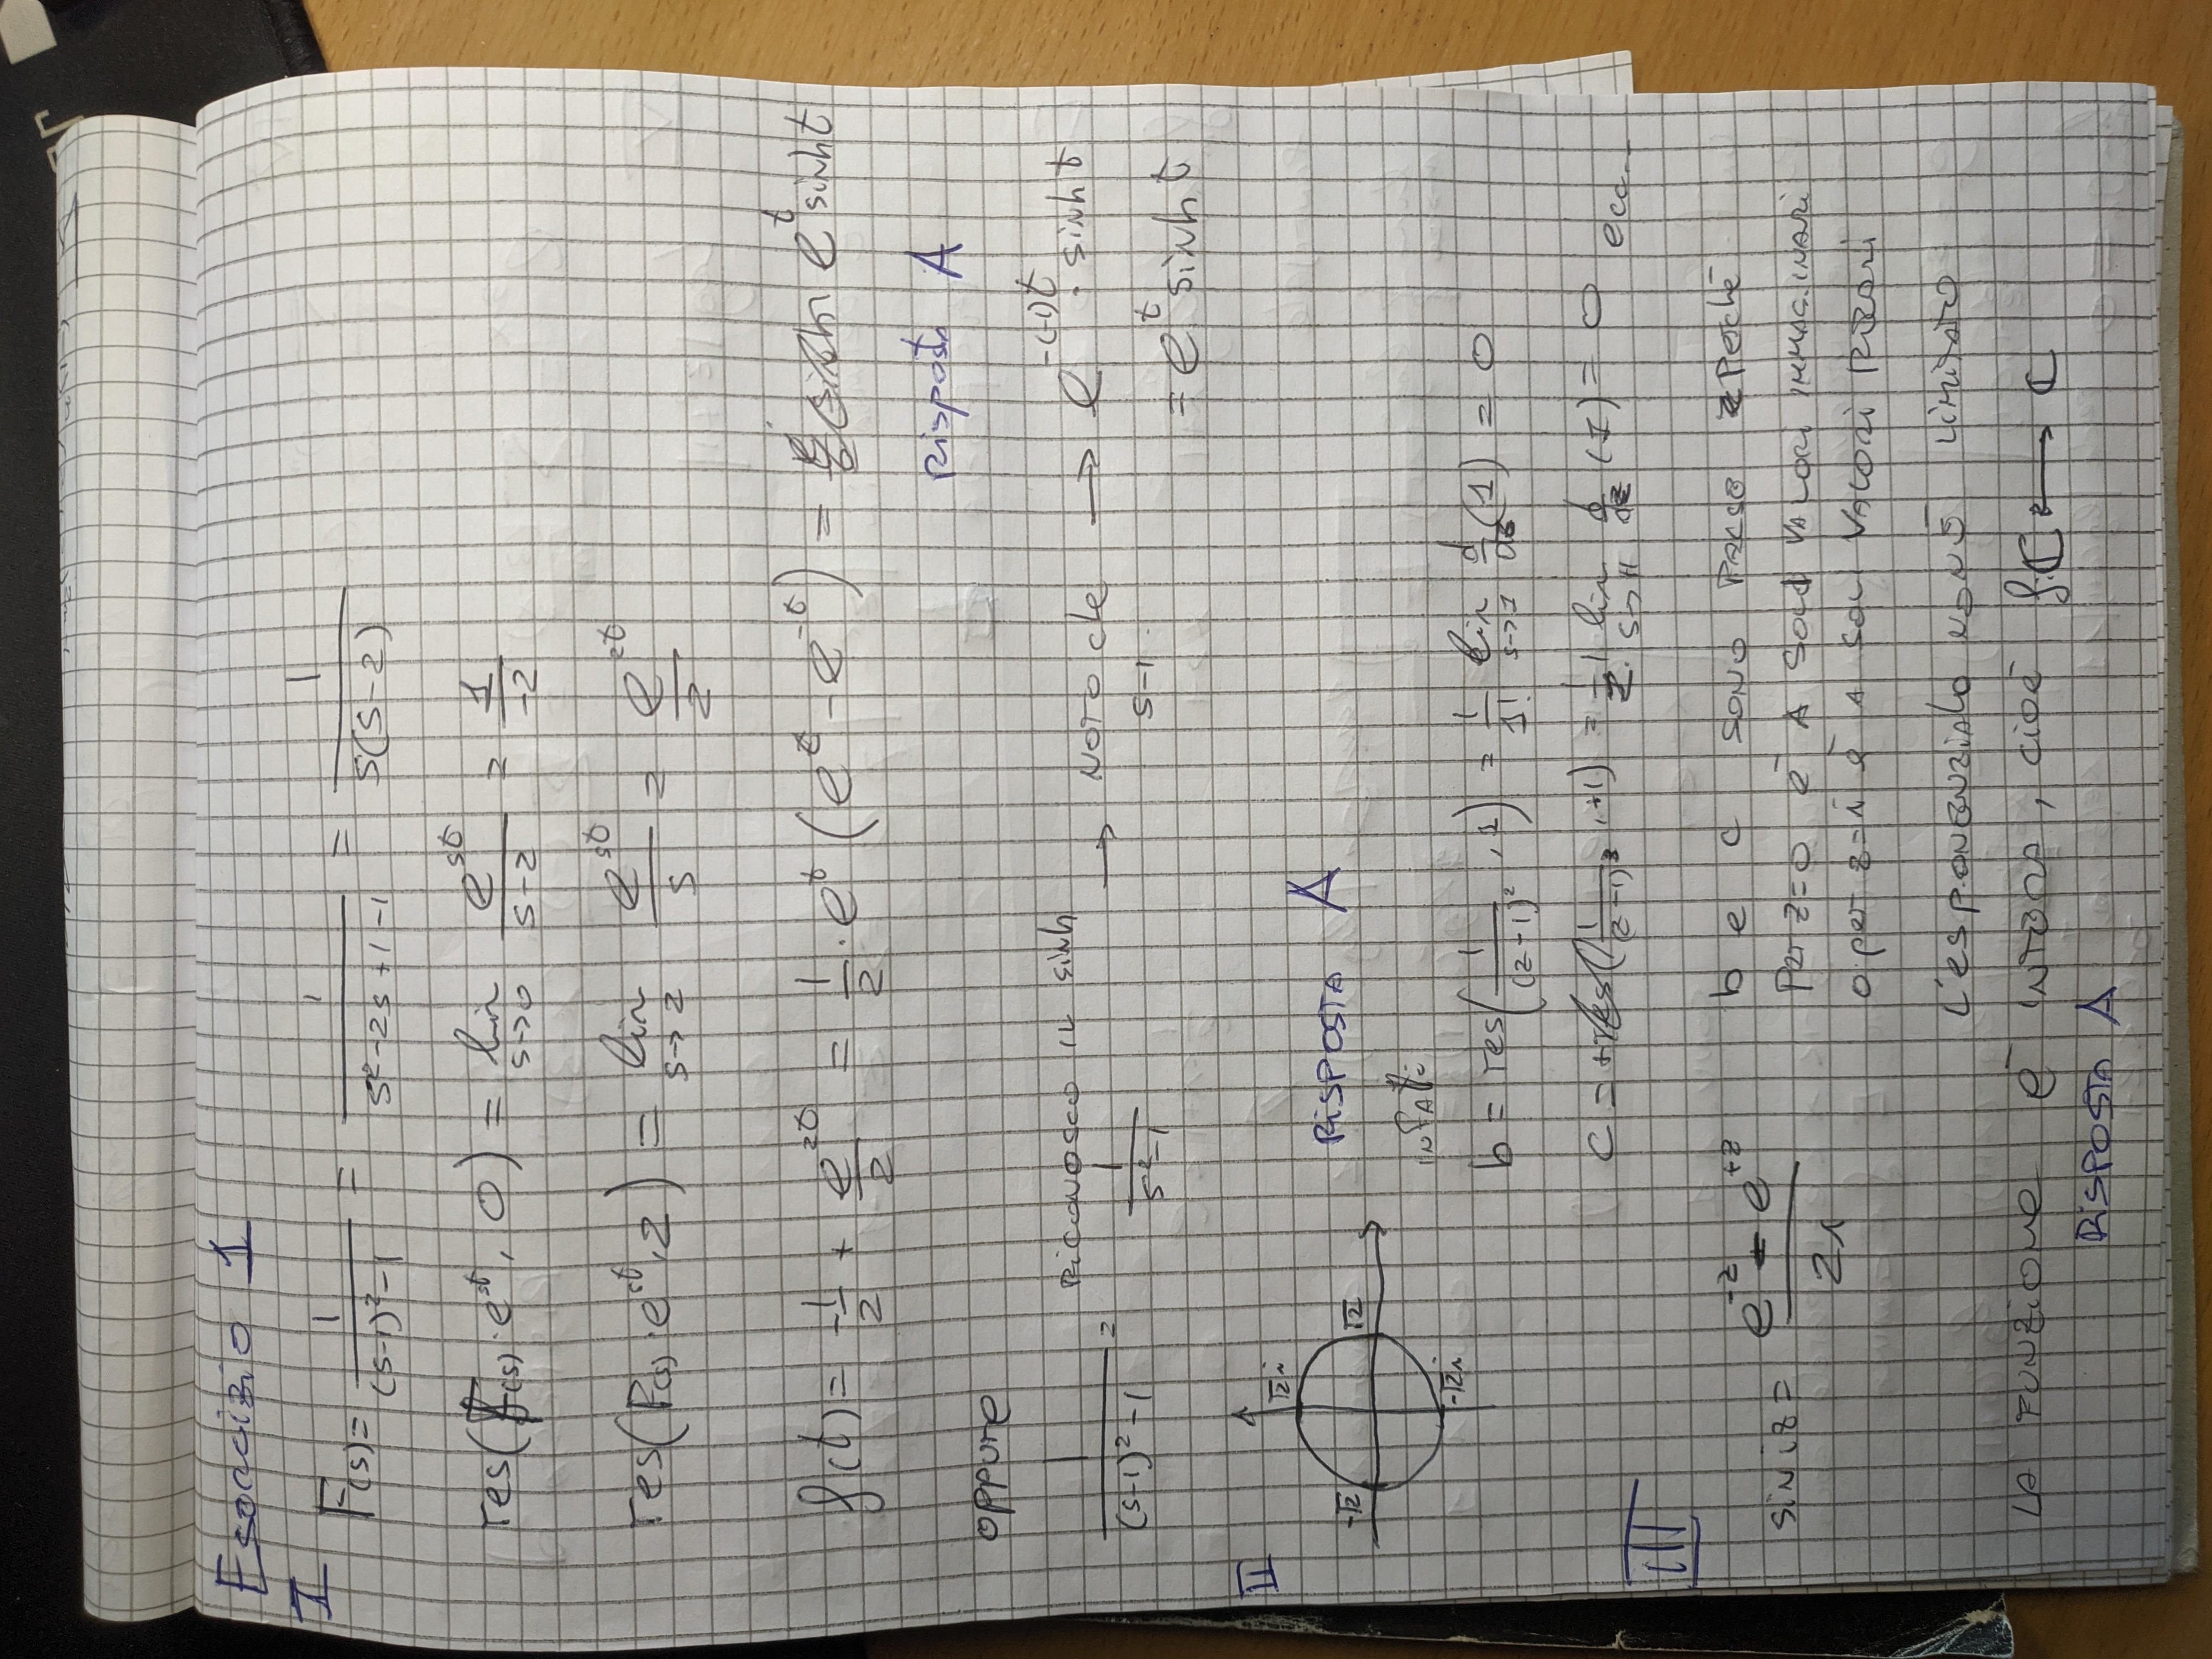 Esercizio 1
I
F(s) = 1/((s-1)²-1) = 1/(s²-2s+1-1) = 1/(s(s-2))
res(F(s)·e^st, 0) = lim s→0 e^st/(s-2) = 1/-2
res(F(s)·e^st, 2) = lim s→2 e^st/s = e^2t/2
f(t) = -1/2 + e^2t/2 = 1/2 · e^t (e^t - e^-t) = e^t sinh t
Risposta A
oppure
1/((s-1)²-1) = RICONOSCO IL sinh 1/(s²-1) → NOTO che s-1 → e^-(-1)t · sinh t
= e^t sinh t
II
√2i
-√2 √2
-√2i
RISPOSTA A
INFATTI
b = res(1/(z-1)², 1) = 1/1! lim s→1 d/ds (1) = 0
c = +res(1/(z-1)³, +1) = 1/2! lim s→+1 d/dz (1) = 0 ecc...
III
sin iz = (e^-z - e^+z)/2i
b e c SONO FALSE perché
Per z=0 è A SOLI VALORI IMMAGINARI
o per z=i è A SOLI VALORI REALI
L'esponenziale non è LIMITATO
LA FUNZIONE È INTERA, cioè f: ℂ → ℂ
RISPOSTA A